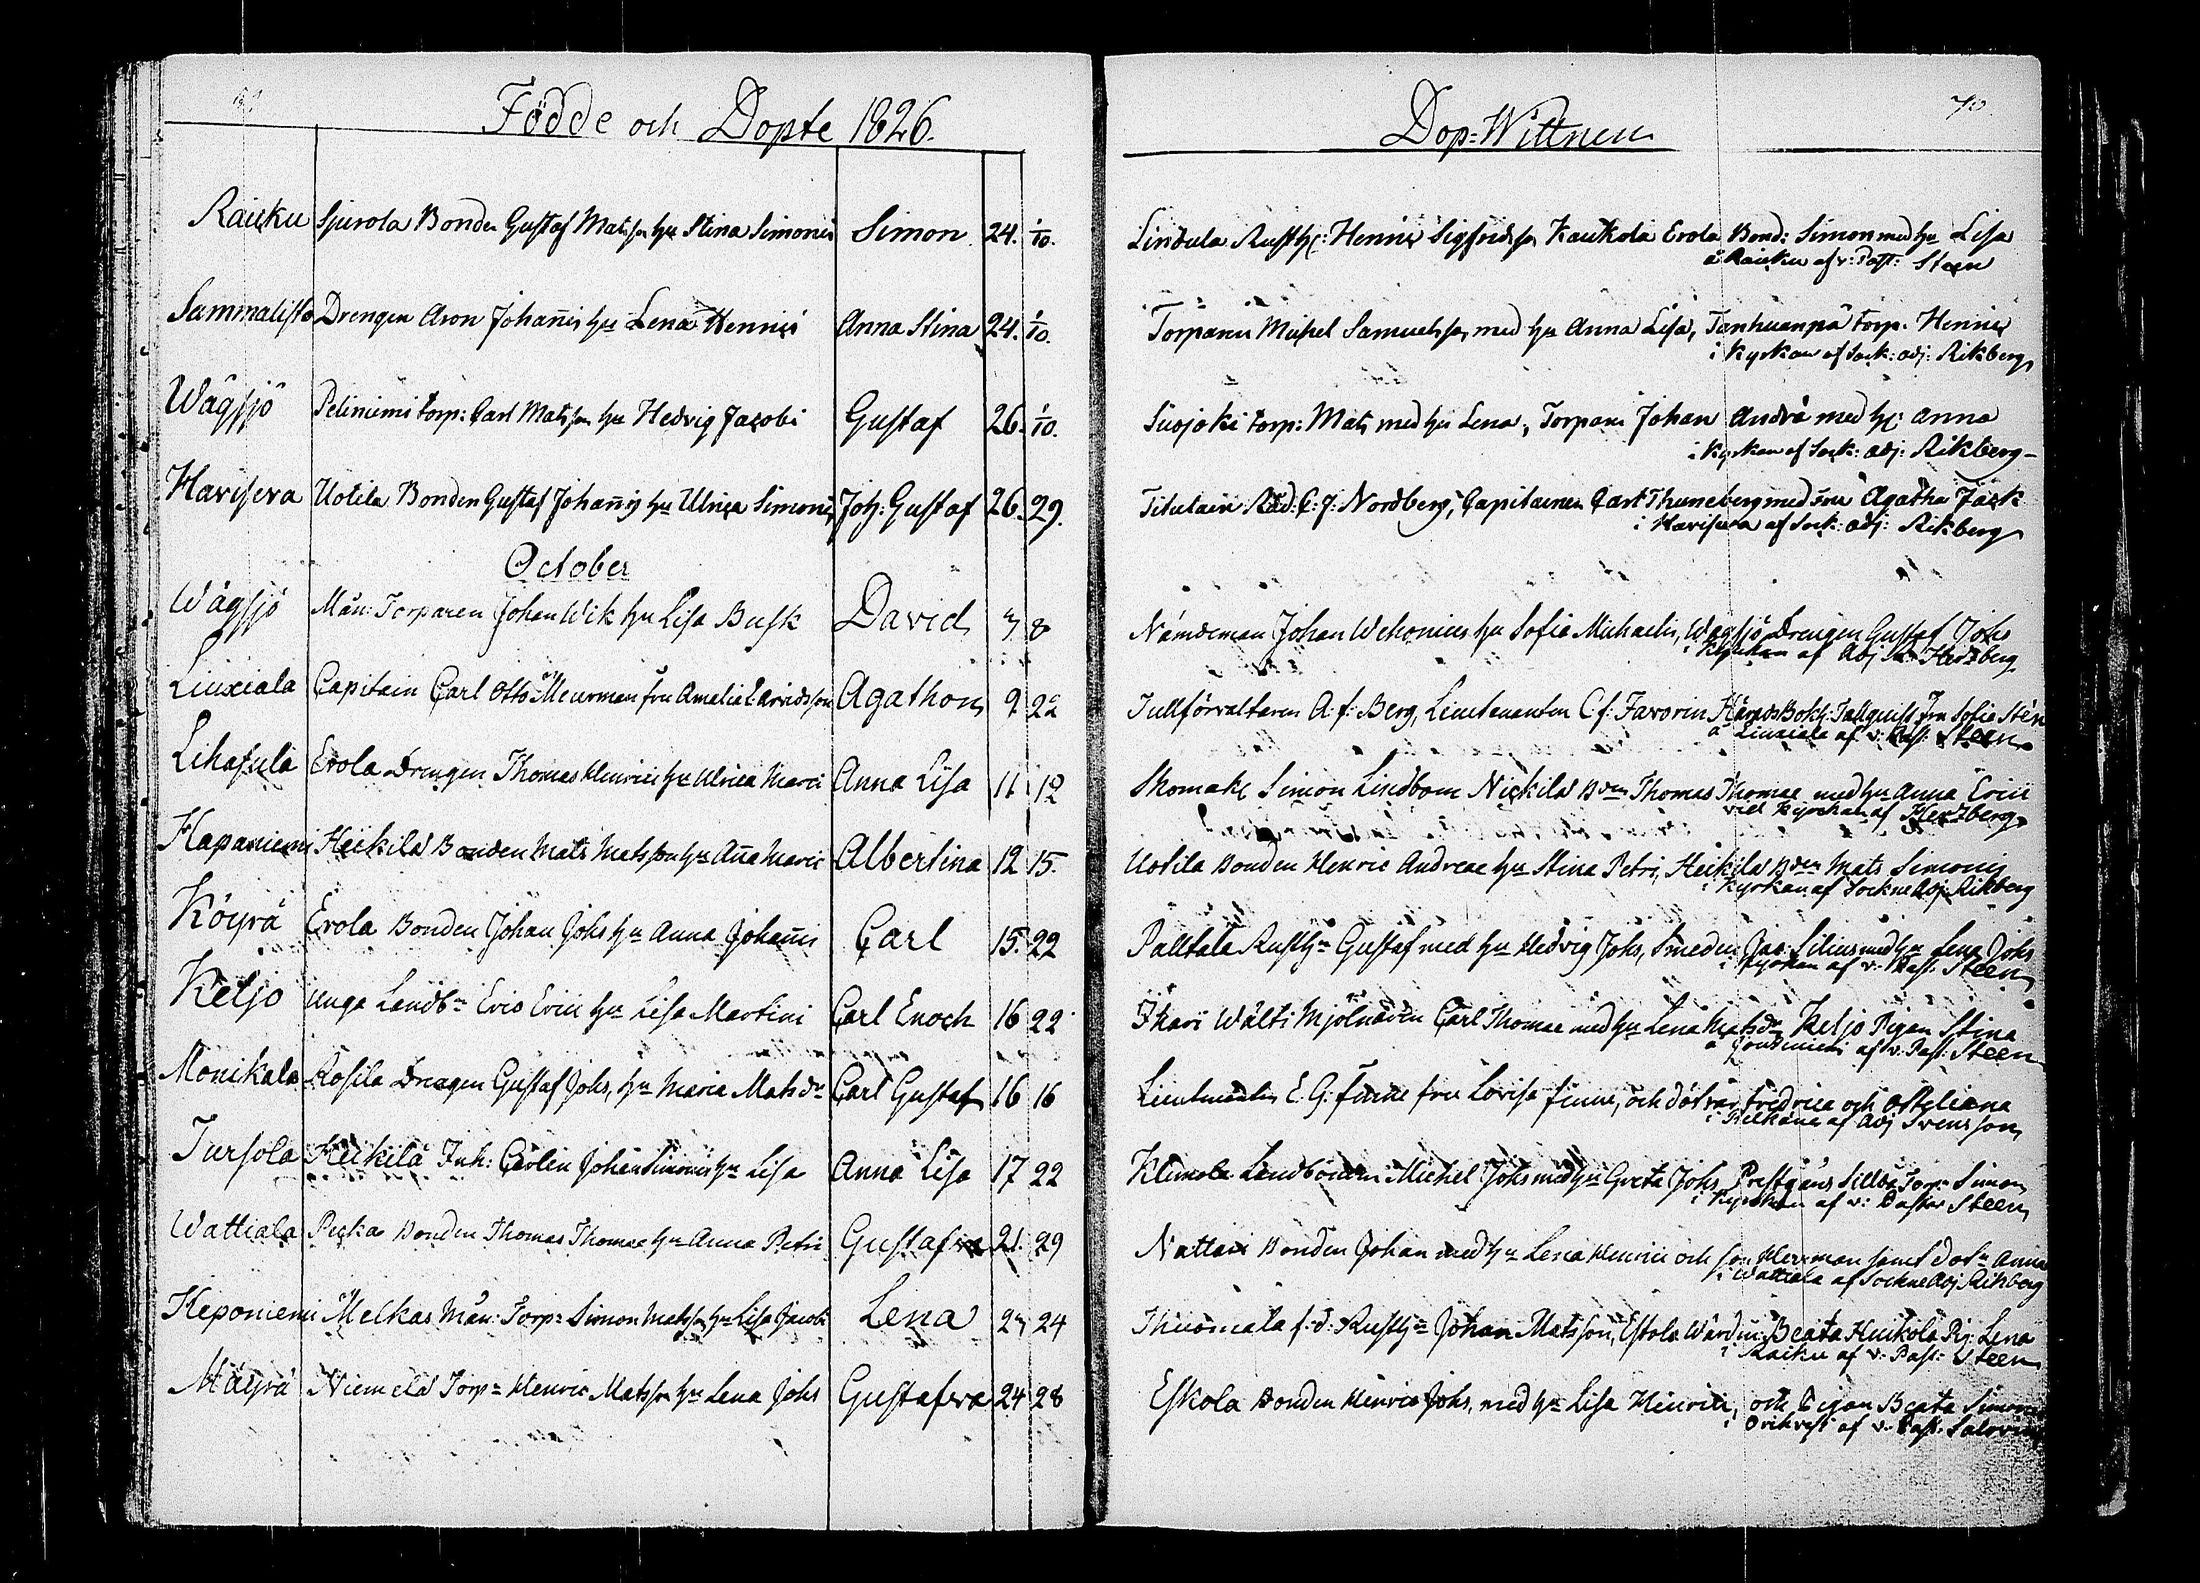 Födde och Dopte 1826.
Rauku Sjurola Bonden Gustaf Matsson hu Stina Simonis Simon 24. 1/10.
Sammalisto Drengen Aron Johañis hu Lena Henrici Anna Stina 24. 1/10.
Wågsjö Peliniemi torp: Carl Matsson hu Hedvig Jacobi Gustaf 26. 1/10.
Havisera Uotila Bonden Gustaf Johañis hu Ulrica Simonis Joh: Gustaf 26. 29.
October
Wågsjö Män: Torparen Johan Wik hu Lisa Busk David 7 8
Liuxiala Capitain Carl Otto Meurman fru Amalia Arvidsson Agathon 9 22
Lihasula Erola Drengen Thomas Henrici hu Ulrica Marci Anna Lisa 11 12
Hapaniemi Heikilä Bonden Mats Matsson hu Aña Maria Albertina 12 15.
Köyrä Erola Bonden Johan Johs hu Anna Johañis Carl 15. 22
Keljo Unga Landb: Eric Erici hu Lisa Martini Carl Enoch 16 22
Monikala Rosila Drengen Gustaf Johs, hu Maria Matsdr Carl Gustaf 16 16
Tursola Heikilä Inh: Johan Simonis hu Lisa Anna Lisa 17 22
Wattiala Pecka Bonden Thomas Thomae hu Anna Petri Gustafva 21. 29
Keponiemi Melkas Män: Torp: Simon Matsson hu Lisa Jacobi Lena 23 24
Mäyrä Niemelä Torp: Henric Matsson hu Lena Johs Gustafva 24 28
Dop-Wittnen
70
Lindula Rusth: Henric Sigfridsson Kaukola Erola Bond: Simon med hu Lisa
å Rauku af v: Past: Steen
Torparen Michel Samuelsson med hu Anna Lisa, Tanhuanpä torp. Henric
i Kyrkan af Sock: adj: Rikberg
Suojoki torp: Mats med hu Lena, Torparn Johan Andrä med h: Anna
i Kyrkan af Sock: adj: Rikberg
Titulair Råd: C: J: Nordberg, Capitainen Carl Thuneberg med fru Agatha Jack
i Havisera af Sock: adj: Rikberg
Nämdeman Johan Wehonius hu Sofia Michaelis, Wågsjö Drengen Gustaf Johs
i Kyrkan af Adj Herzberg
Tullförvaltaren A. f: Berg, Lieutenanten C. f: Favorin Härads Bokh: Tallqvist Fru Sofia Stén
å Liuxiala af v: Past: Steen
Skomak: Simon Lindbom Nickilä Bden Thomas Thomae med hu Anna Erici
vid Kyrkan af Herzberg
Uotila Bonden Henric Andreae hu Stina Petri, Heikilä Bden Mats Simonis
i Kyrkan af Sockne Adj: Rikberg
Palttala Rusth: Gustaf med hu Hedvig Johs, Smeden Jac: Lilius med hu Lena Johs
i Kyrkan af v: Past: Steen
Ikari Wälti Mjölnaren Carl Thomae med hu Lena Matsdr Keljo Pigan Stina
å af v: Past: Steen
Lieutnanten E. G: Finne fru Lovisa Finne, och döttrar Fredrica och
i Pelkäne af Adj Svensson
Klemola Landbonden Michel Johs med hu Greta Johs, Prestgårs Torp: Simon
i Kyrkan af v: Pastor Steen
Nattari Bonden Johan med hu Lena Henrici och son Herman samt dotr Anna
i Wattiala af Sockne Adj Rikberg
Thuomala f. d: Rusth: Johan Matsson, Estola Wärdin Beata Huikola Pig: Lena
i Raiku af v: Past: Steen
Eskola Bonden Henric Johs, med hu Lisa Henrici, och Pigan Beata Simonis
i Orihvesi af v: Past: Salovius